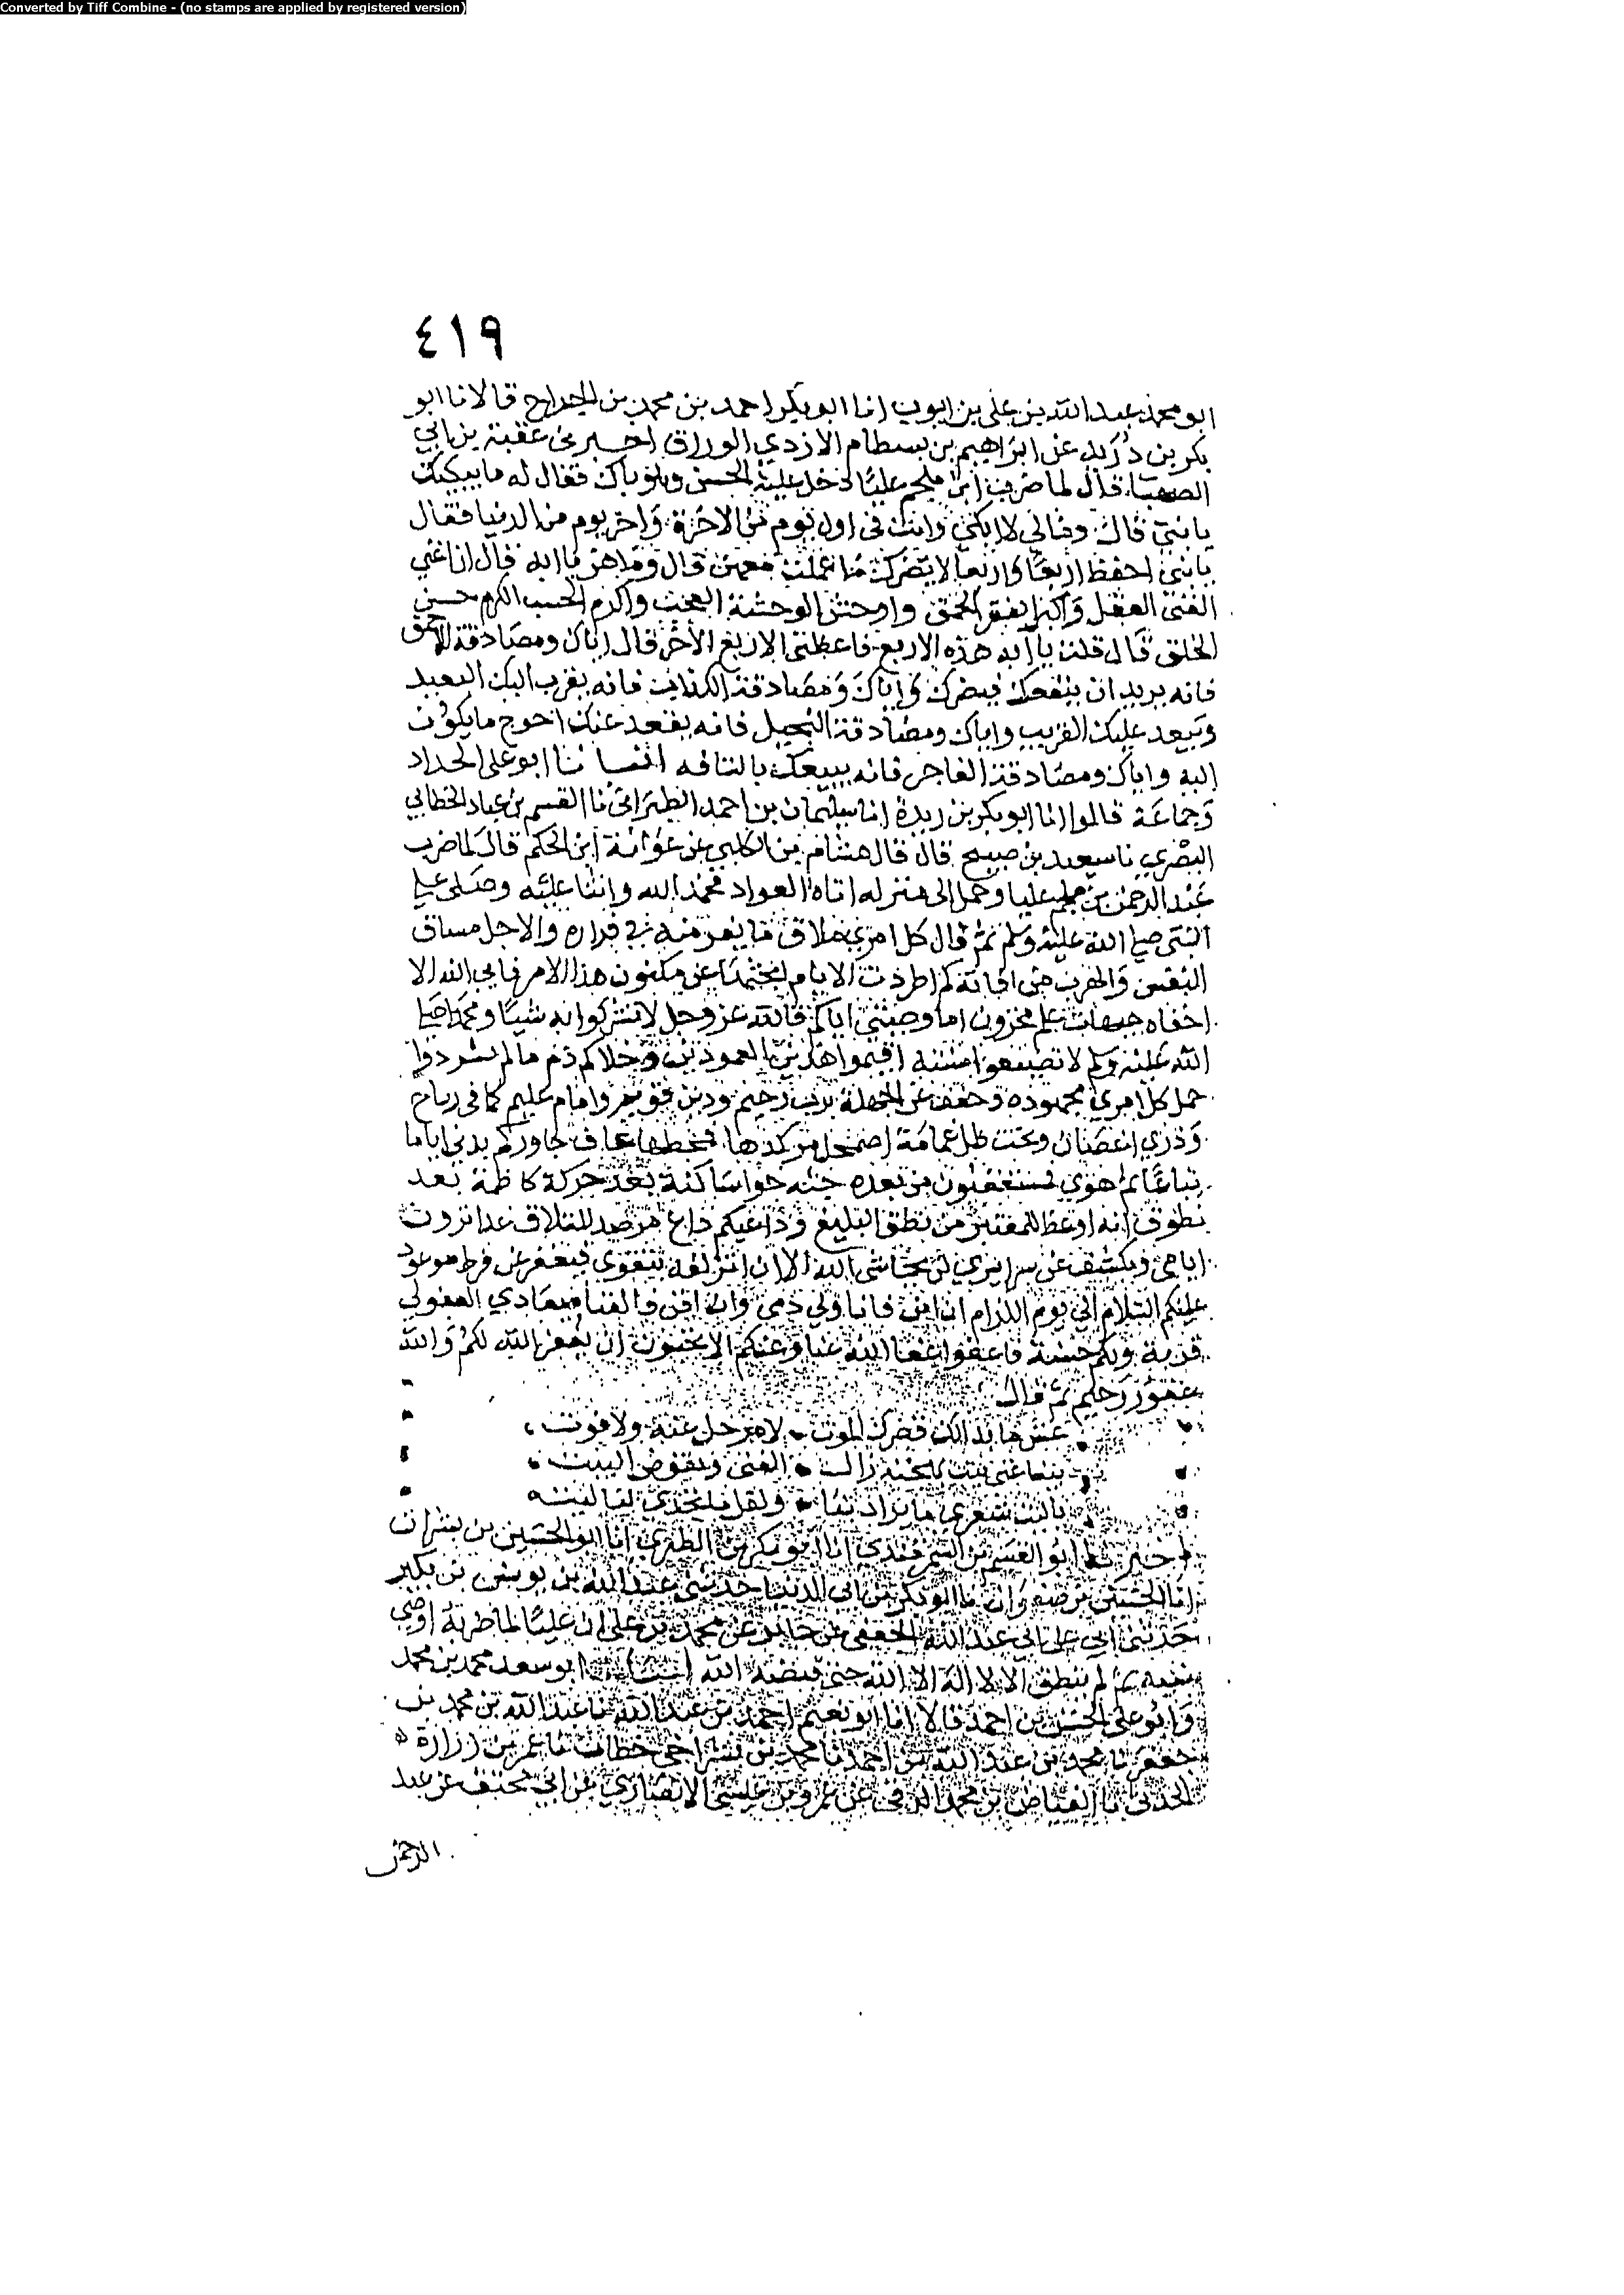 Converted by Tiff Combine - (no stamps are applied by registered version)
٤١٩
ابو محمد عبد الله بن علي بن ايوب انا ابو بكر احمد بن محمد بن الجراح قالا نا ابو
بكر بن دريد عن ابراهيم بن بسطام الازدي الوراق اخبرني عقبة بن ابي
الصهبا قال لما ضرب ابن ملجم عليا دخل عليه الحسن وهو باك فقال له ما يبكيك
يا بني قال ومالي لا ابكي وانت في اول يوم من الاخرة واخر يوم من الدنيا فقال
يا بني احفظ اربعا واربعا لا يضرك ما عملت معهن قال وما هن يا ابه قال ان اغنى
الغنى العقل واكبر الفقر الحمق واوحش الوحشة العجب واكرم الحسب الكرم حسن
الخلق قال قلت يا ابه هذه الاربع فاعطني الاربع الاخر قال اياك ومصادقة الاحمق
فانه يريد ان ينفعك فيضرك واياك ومصادقة الكذاب فانه يقرب اليك البعيد
ويبعد عليك القريب واياك ومصادقة البخيل فانه يقعد عنك احوج ما يكون
اليه واياك ومصادقة الفاجر فانه يبيعك بالتافه انبانا ابو علي الحداد
وجماعة قالوا انا ابو بكر بن ريذة انا سليمان بن احمد الطبراني نا القسم بن عباد الخطابي
البصري نا سعيد بن صبيح قال قال هشام بن الكلبي عن عوانة ابن الحكم قال لما ضرب
عبد الرحمن بن ملجم عليا وحمل الى منزله اتاه العواد فحمد الله واثنا عليه وصلى على
النبي صلى الله عليه وسلم ثم قال كل امرئ ملاق ما يفر منه في فراره والاجل مساق
النفس والهرب من افاته كم اطردت الايام ابحثها عن مكنون هذا الامر فابى الله الا
اخفاه هيهات علم مخزون اما وصيتي اياكم فالله عز وجل لا تشركوا به شيئا ومحمدا صلى
الله عليه وسلم لا تضيعوا سنته اقيموا هذين العمودين وخلاكم ذم ما لم تشردوا
حمل كل امرئ مجهوده وخفف عن الجهلة برب رحيم ودين قويم وامام عليم كنا في رياح
وذري اغصان وتحت ظل غمامة اضمحل مركدها فمحطها عاف جاوركم بدني اياما
تباعا ثم هوى فستعقبون من بعده جثة خواء ساكنة بعد حركة كاظمة بعد
نطوق انه اوعظ للمعتبرين من نطق البليغ وداعيكم داع مرصد للتلاق غدا ترون
ايامي ويكشف عن سرائري لن يحاشي الله الا ان اتزلفه بتقوى فيغفر عن فرط موعود
عليكم السلام الى يوم اللزام ان ابق فانا ولي دمي وان افن فالفنا ميعادي العفو لي
قربة ولكم حسنة فاعفوا عفا الله عنا وعنكم الا تحبون ان يغفر الله لكم والله
غفور رحيم ثم قال
عش ما بدا لك قصرك الموت لا مرحل عنه ولا فوت
بينا غنى بيت وبهجته زال الغنى وتقوض البيت
يا ليت شعري ما يراد بنا ولقل ما يجدي لنا ليت
اخبرنا ابو القسم بن السمرقندي انا ابو بكر بن الطبري انا ابو الحسين بن بشران
انا الحسين بن صفوان نا ابو بكر بن ابي الدنيا حدثني عبد الله بن يونس بن بكير
حدثني ابي عن ابي عبد الله الجعفي عن جابر عن محمد بن علي ان عليا لما ضربه اوصى
بنيه ثم لم ينطق الا لا اله الا الله حتى قبضه الله انبانا ابو سعد محمد بن محمد
وابو علي الحسن بن احمد قالا انا ابو نعيم احمد بن عبد الله نا عبد الله بن محمد بن
جعفر نا محمد بن عبد الله بن احمد نا محمد بن بشر اخي خطاب نا عمر بن زرارة
الحدثي نا الفياض بن محمد الرقي عن عمرو بن عيسى الانصاري عن ابي مخنف عن عبد
الرحمن